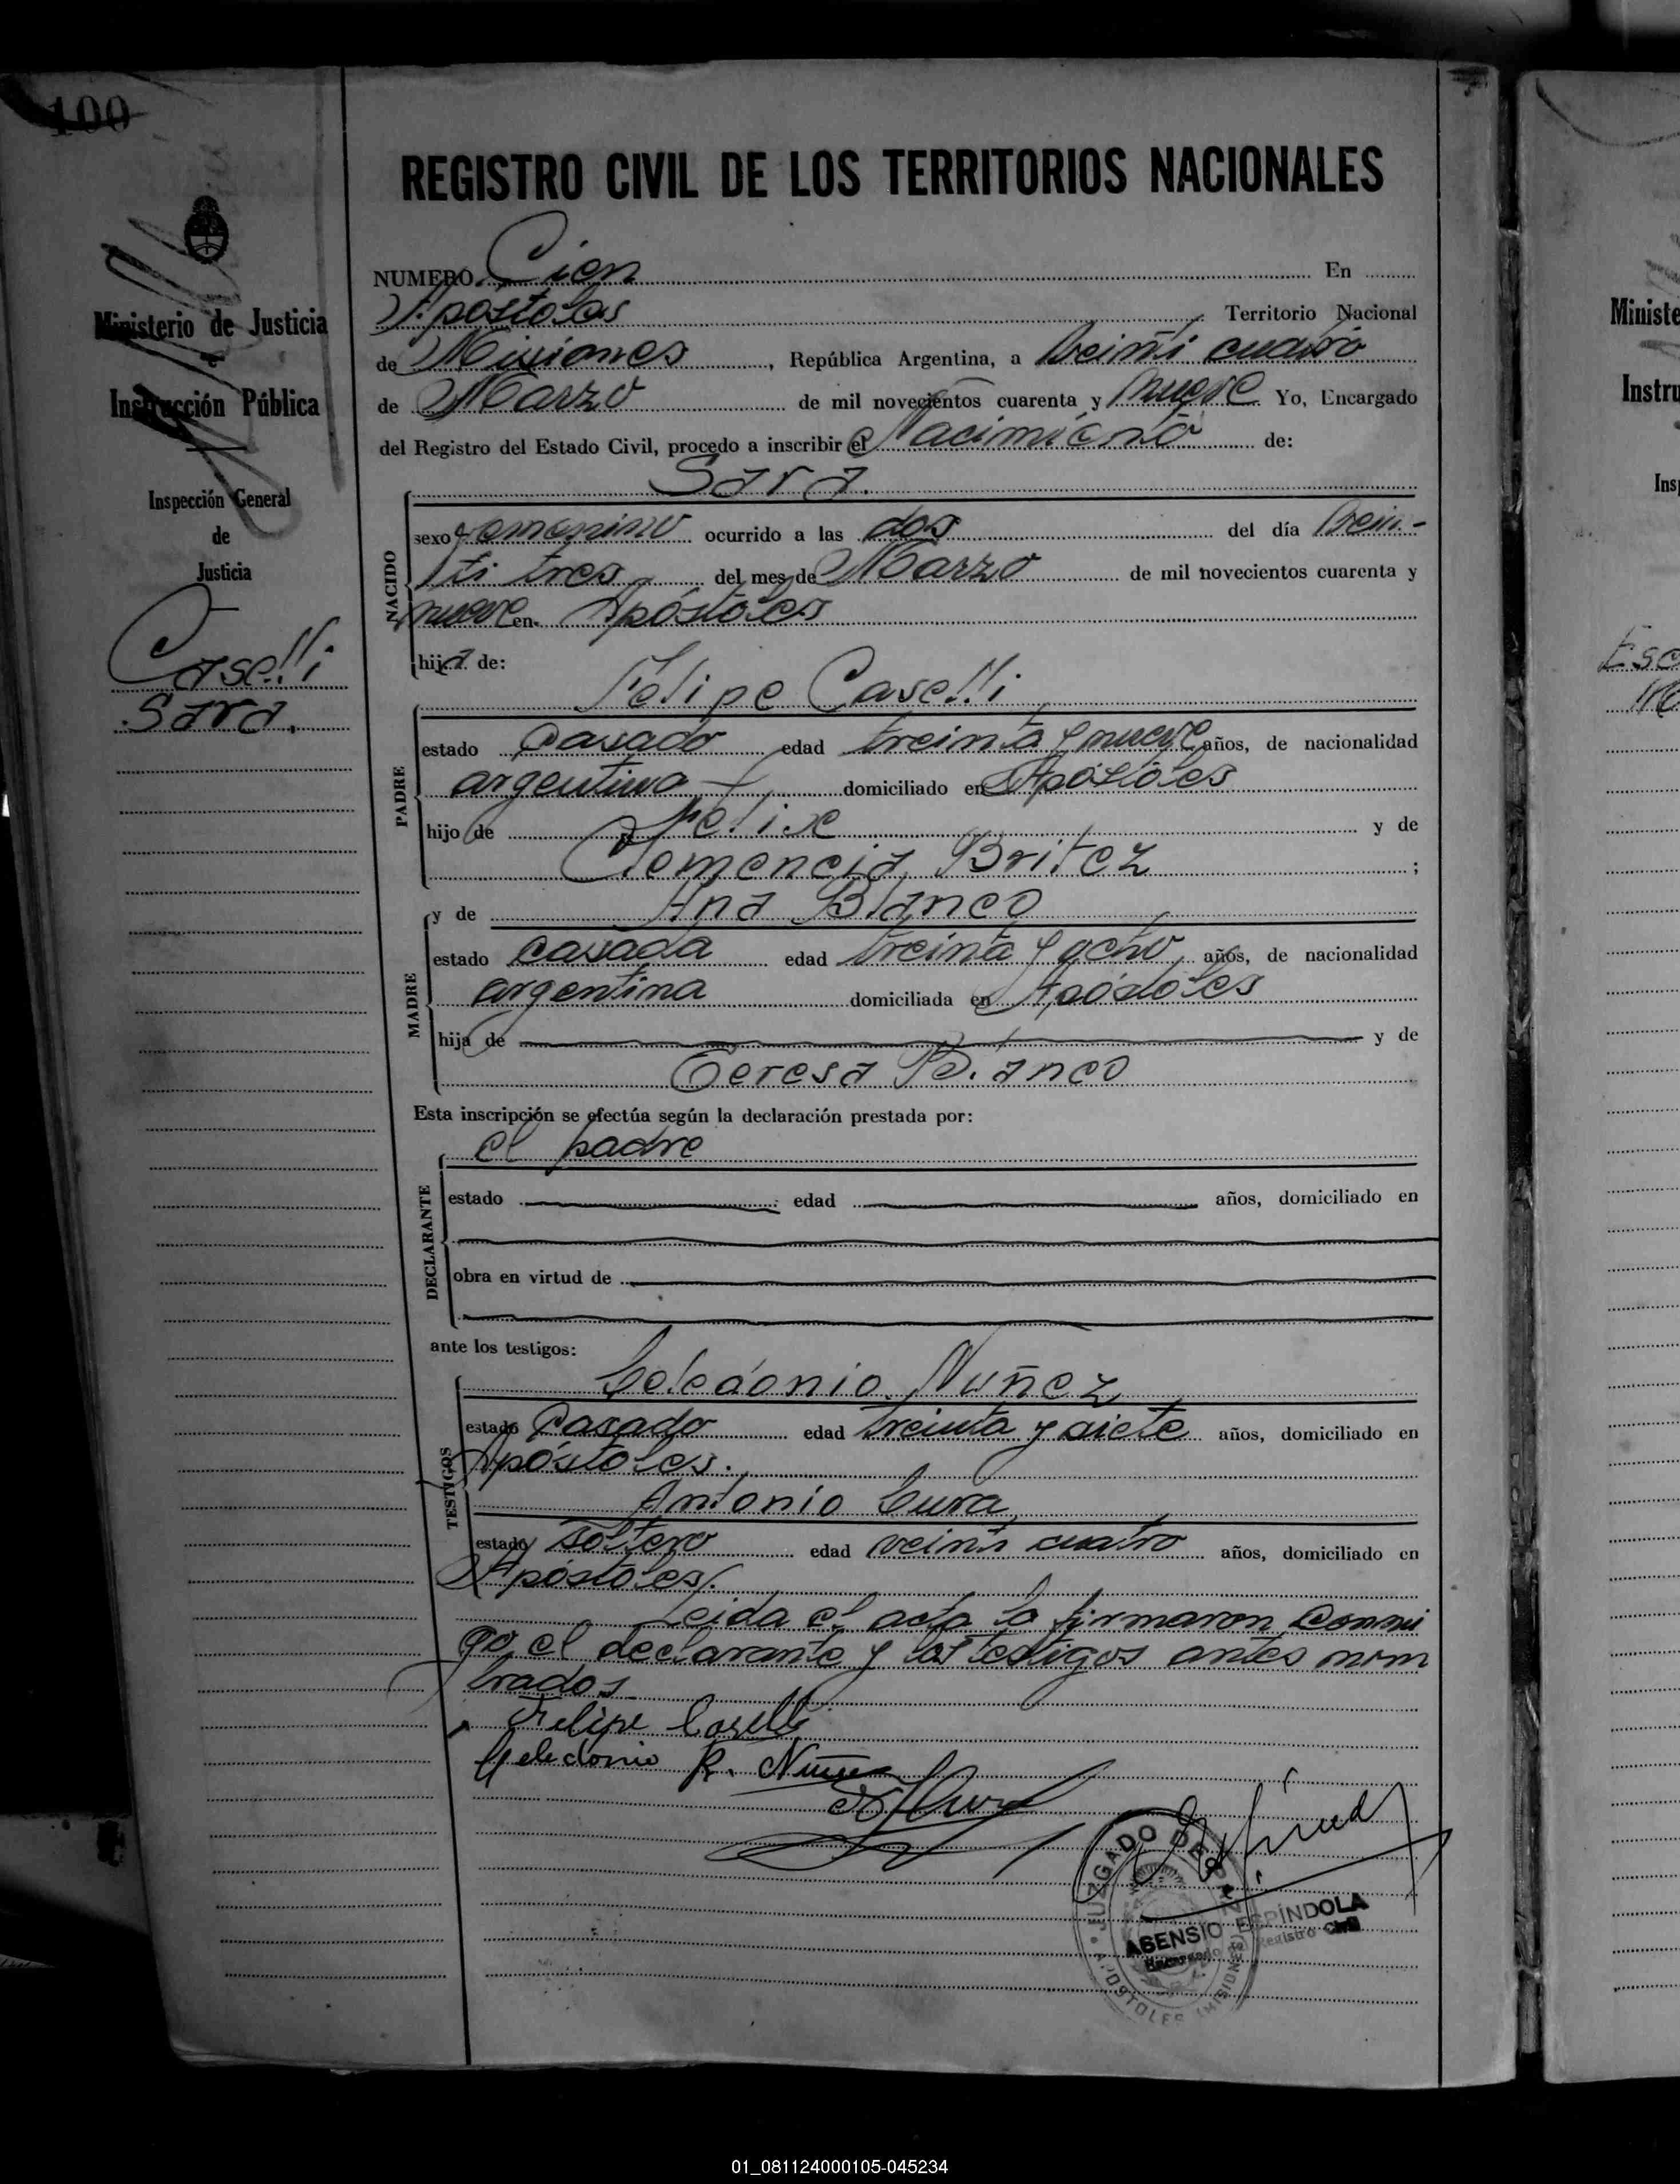 100
REGISTRO CIVIL DE LOS TERRITORIOS NACIONALES
Ministerio de Justicia
e
Instrucción Pública
Inspección General
de
Justicia
Caselli
Sara.
NUMERO Cien En
Apóstoles Territorio Nacional
de Misiones, República Argentina, a veinti cuatro
de Marzo de mil novecientos cuarenta y nueve Yo, Encargado
del Registro del Estado Civil, procedo a inscribir el Nacimiento de:
Sara.
NACIDO
sexo femenino ocurrido a las dos del día vein-
ti tres del mes de Marzo de mil novecientos cuarenta y
nueve en Apóstoles
hija de:
Felipe Caselli
PADRE
estado casado edad treinta y nueve años, de nacionalidad
argentina domiciliado en Apóstoles
hijo de Felix y de
Clemencia Britez ;
y de Ana Blanco
MADRE
estado casada edad treinta y ocho años, de nacionalidad
argentina domiciliada en Apóstoles
hija de y de
Teresa Blanco
Esta inscripción se efectúa según la declaración prestada por:
el padre
DECLARANTE
estado edad años, domiciliado en
obra en virtud de
ante los testigos:
Celedonio Nuñez
TESTIGOS
estado casado edad treinta y siete años, domiciliado en
Apóstoles.
Antonio Cura
estado soltero edad veinti cuatro años, domiciliado en
Apóstoles.
Leida el acta la firmaron conmi
go el declarante y los testigos antes nom
brados
Felipe Caselli
Celedonio R. Nuñez
JUZGADO DE PAZ
APOSTOLES (MISIONES)
ASENSIO ESPÍNDOLA
Encargado del Registro Civil
Ministe
Instru
Insp
Esc
01_081124000105-045234